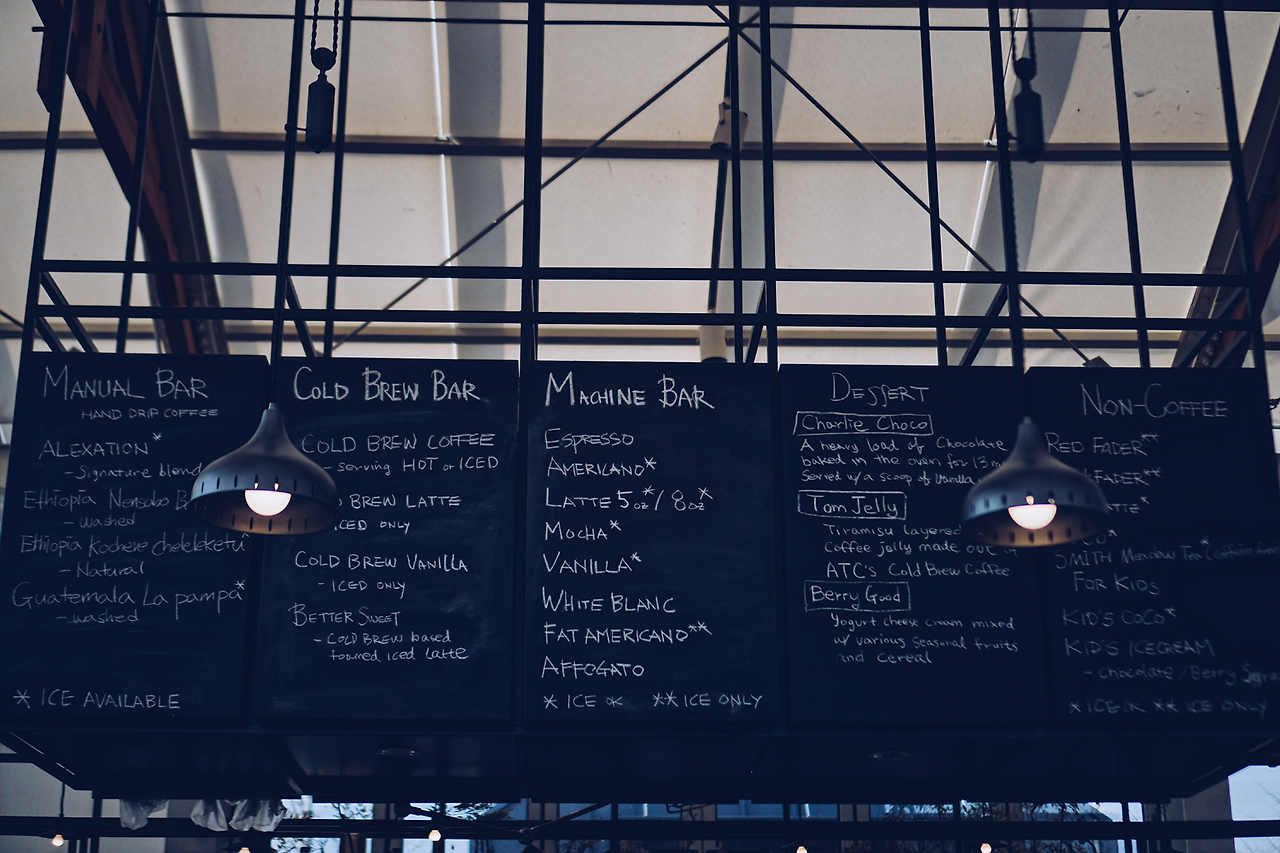 MANUAL BAR
HAND DRIP COFFEE
ALEXATION*
- Signature blend
Ethiopia
- washed
Ethiopia Kochere cheleleketu*
- Natural
Guatemala La pampa*
- washed
* ICE AVAILABLE
COLD BREW BAR
COLD BREW COFFEE
- serving HOT or ICED
BREW LATTE
ICED ONLY
COLD BREW VANILLA
- ICED ONLY
BETTER SWEET
- COLD BREW based
foamed iced latte
MACHINE BAR
ESPRESSO
AMERICANO*
LATTE 5oz* / 8oz*
MOCHA*
VANILLA*
WHITE BLANC
FAT AMERICANO**
AFFOGATO
* ICE OK ** ICE ONLY
DESSERT
Charlie Choco
A heavy load of Chocolate
baked in the oven for 13
Served w/ a scoop of Vanilla
Tom Jelly
Tiramisu layered
Coffee jelly made out
ATC's Cold Brew Coffee
Berry Good
Yogurt cheese cream mixed
w/ various seasonal fruits
and cereal
NON-COFFEE
RED FADER**
FADER**
SMITH Meadow Tea
FOR KIDS
KID'S COCO*
KID'S ICECREAM
- chocolate / Berry
* ICE OK ** ICE ONLY